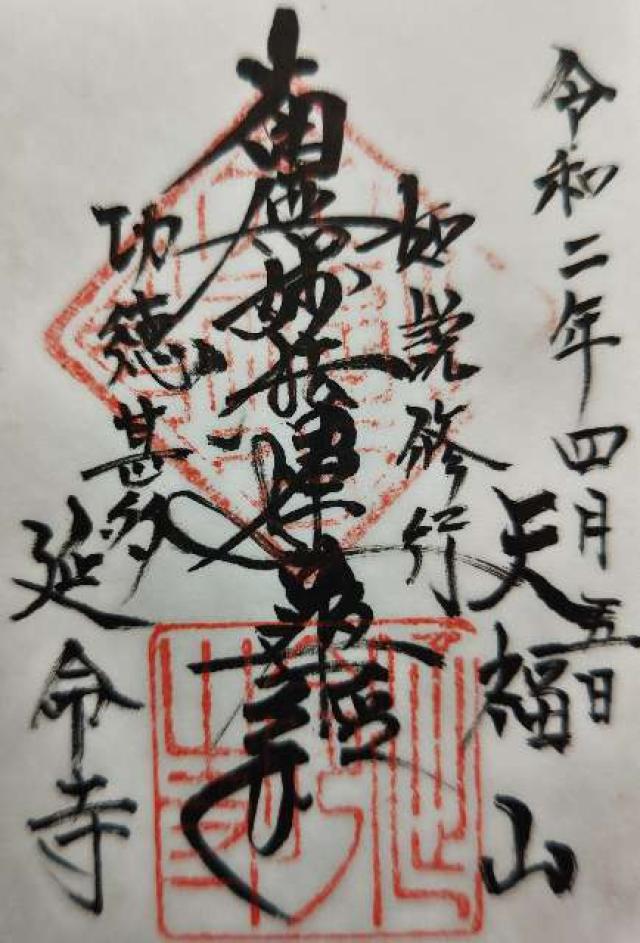 令和二年四月五日
天福山
如説修行
南無妙法蓮華經
功徳甚多
延命寺